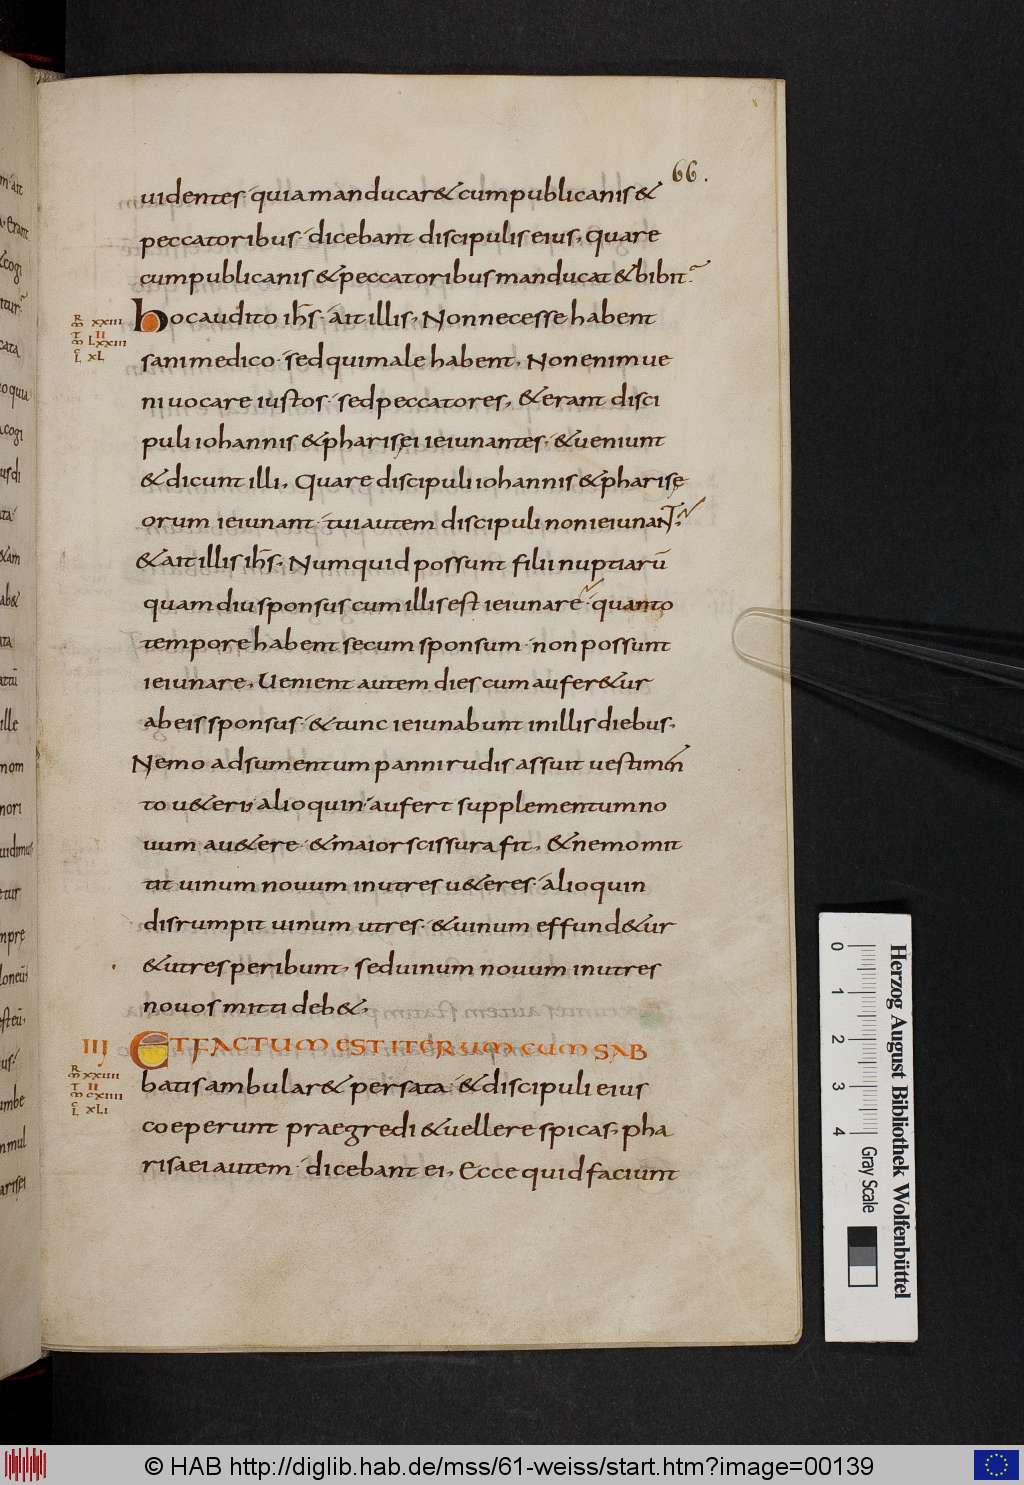 66.
uidentes· quia manducar& cum publicanis &
peccatoribus· dicebant discipulis eius, quare
cum publicanis & peccatoribus manducat & bibit?
R xxiii
hoc audito ihs· ait illis, Non necesse habent
T II
m Lxxiii
L xL
sani medico· sed qui male habent, Non enim ue
ni uocare iustos· sed peccatores, & erant disci
puli iohannis & pharisęi ieiunantes· & ueniunt
& dicunt illi, Quare discipuli iohannis & pharisę
orum ieiunant· tui autem discipuli non ieiunaNT?
& ait illis ihs, Numquid possunt filii nuptiarū
quamdiu sponsus cum illis est ieiunare· quanto
tempore habent secum sponsum· non possunt
ieiunare, Uenient autem dies cum aufer&ur
ab eis sponsus· & tunc ieiunabunt in illis diebus,
Nemo adsumentum panni rudis assuit uestimen
to u&eri· alioquin aufert supplementum no
uum au&ere· & maior scissura fit, & nemo mit
tit uinum nouum in utres u&eres· alioquin
disrumpit uinum utres· & uinum effund&ur
& utres peribunt, sed uinum nouum in utres
nouos mitti deb&,
III
ET FACTUM EST ITERUM CUM SAB
R
m xxiiii
batis ambular& per sata· & discipuli eius
T II
m cxiiii
L xLi
coeperunt praegredi & uellere spicas, pha
risaei autem· dicebant ei, Ecce quid faciunt
0
1
2
3
4
Gray Scale
Herzog August Bibliothek Wolfenbüttel
© HAB http://diglib.hab.de/mss/61-weiss/start.htm?image=00139